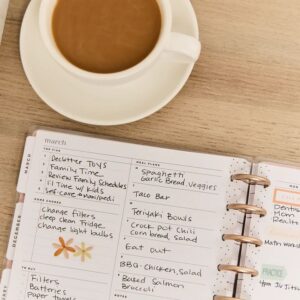 march
MARCH
DECEMBER
TOP FIVE
Declutter TOYS
Family Time
Review Family Schedules
1:1 Time w/ Kids
Self-care & manipedi
HOME CHORES
Change filters
deep clean Fridge
Change light bulbs
TO BUY
Filters
Batteries
Paper towels
MEAL PLANS
Spaghetti
Garlic Bread Veggies
Taco Bar
Teriyaki Bowls
Crock pot Chili
Corn bread, Salad
Eat out
BBQ-Chicken, salad
Baked Salmon
Broccoli
NOTES
Mom